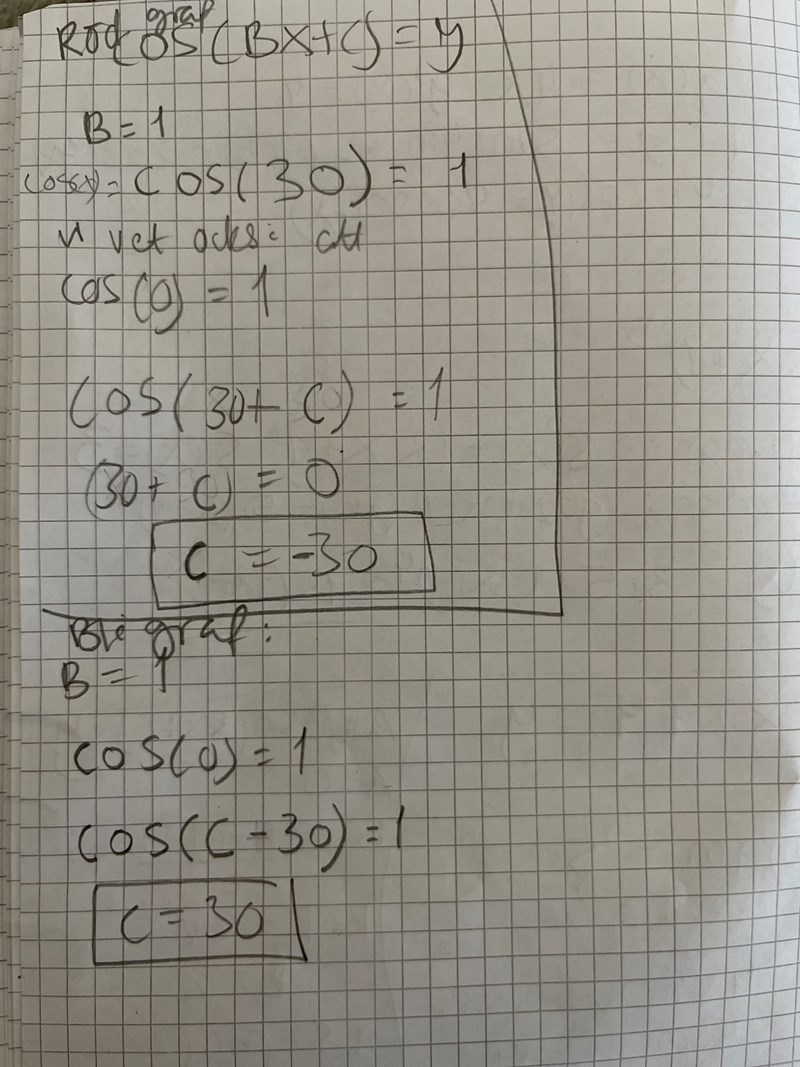 Röd graf
COS(BX+C)=y
B=1
cos(x)= COS(30)= 1
vi vet också att
cos(0) = 1
COS(30+ C) = 1
(30+ C) = 0
C = -30
Blå graf:
B = 1
COS(0)=1
COS(C-30)=1
C=30